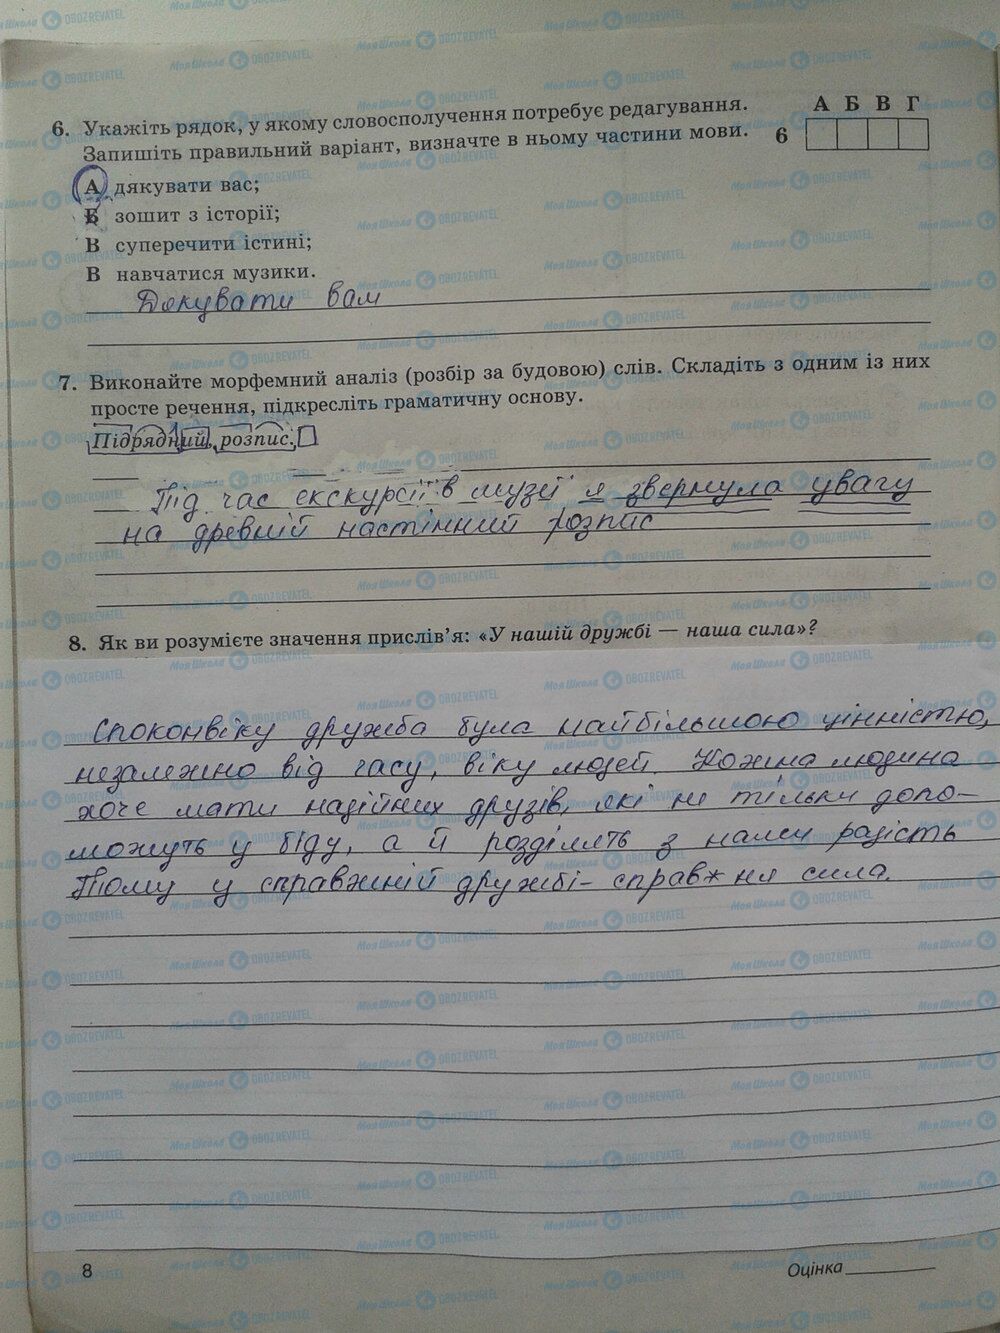 6. Укажіть рядок, у якому словосполучення потребує редагування.
Запишіть правильний варіант, визначте в ньому частини мови.
А Б В Г
6
А дякувати вас;
Б зошит з історії;
В суперечити істині;
В навчатися музики.
Дякувати вам
7. Виконайте морфемний аналіз (розбір за будовою) слів. Складіть з одним із них
просте речення, підкресліть граматичну основу.
Підрядний, розпис.
Під час екскурсії в музеї я звернула увагу
на древній настінний розпис
8. Як ви розумієте значення прислів'я: «У нашій дружбі — наша сила»?
Споконвіку дружба була найбільшою цінністю,
незалежно від часу, віку людей. Кожна людина
хоче мати надійних друзів, які не тільки допо-
можуть у біду, а й розділять з нами радість
Тому у справжній дружбі - справжня сила.
8
Оцінка
МояШкола OBOZREVATEL